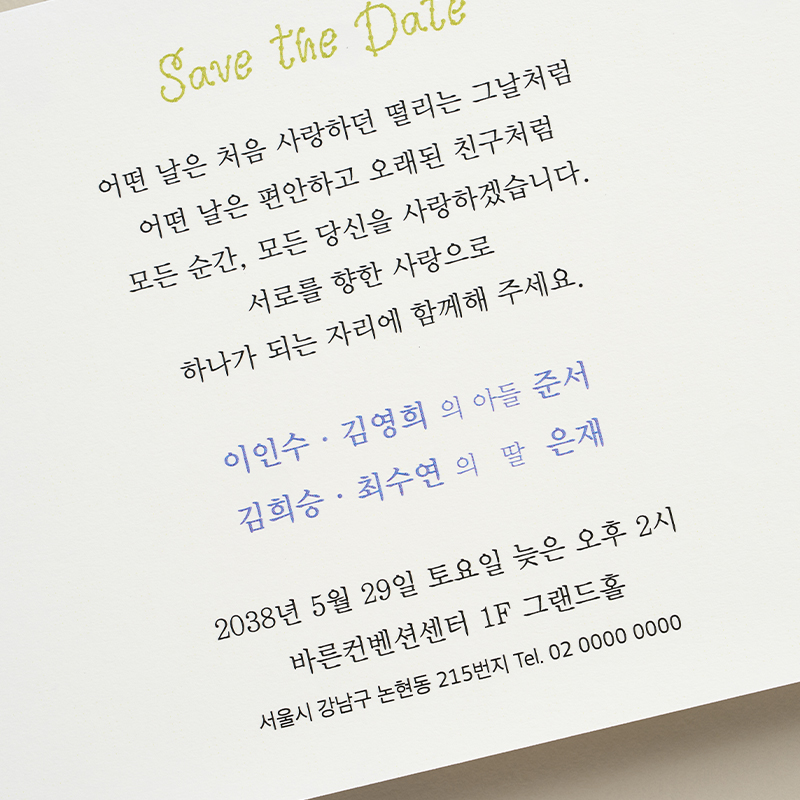 Save the Date
어떤 날은 처음 사랑하던 떨리는 그날처럼
어떤 날은 편안하고 오래된 친구처럼
모든 순간, 모든 당신을 사랑하겠습니다.
서로를 향한 사랑으로
하나가 되는 자리에 함께해 주세요.
이인수 · 김영희 의 아들 준서
김희승 · 최수연 의 딸 은재
2038년 5월 29일 토요일 늦은 오후 2시
바른컨벤션센터 1F 그랜드홀
서울시 강남구 논현동 215번지 Tel. 02 0000 0000